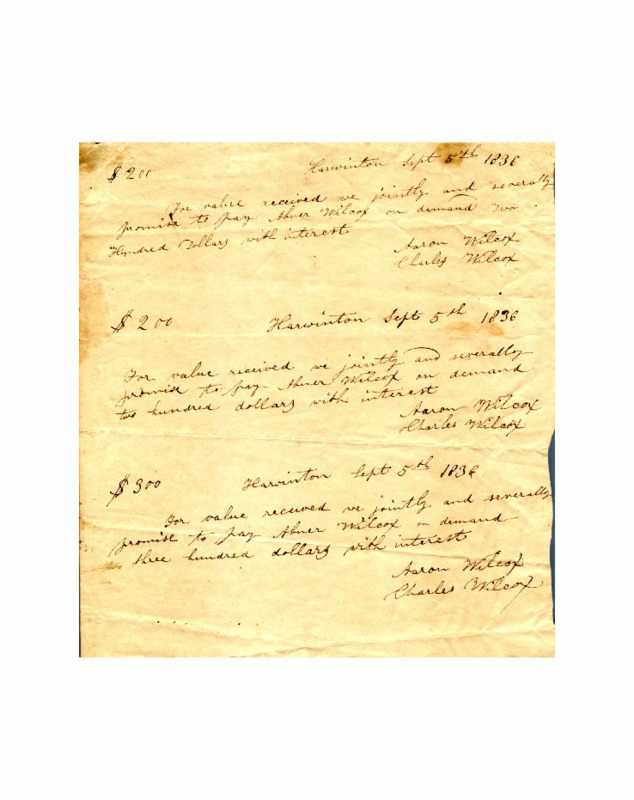 $200 Harwinton Sept 5th 1836
For value received we jointly and severally
promise to pay Abner Wilcox on demand Two
Hundred Dollars with interest
Aaron Wilcox
Charles Wilcox
$200 Harwinton Sept 5th 1836
For value received we jointly and severally
promise to pay Abner Wilcox on demand
two hundred dollars with interest
Aaron Wilcox
Charles Wilcox
$300 Harwinton Sept 5th 1836
For value received we jointly and severally
promise to pay Abner Wilcox on demand
three hundred dollars with interest
Aaron Wilcox
Charles Wilcox